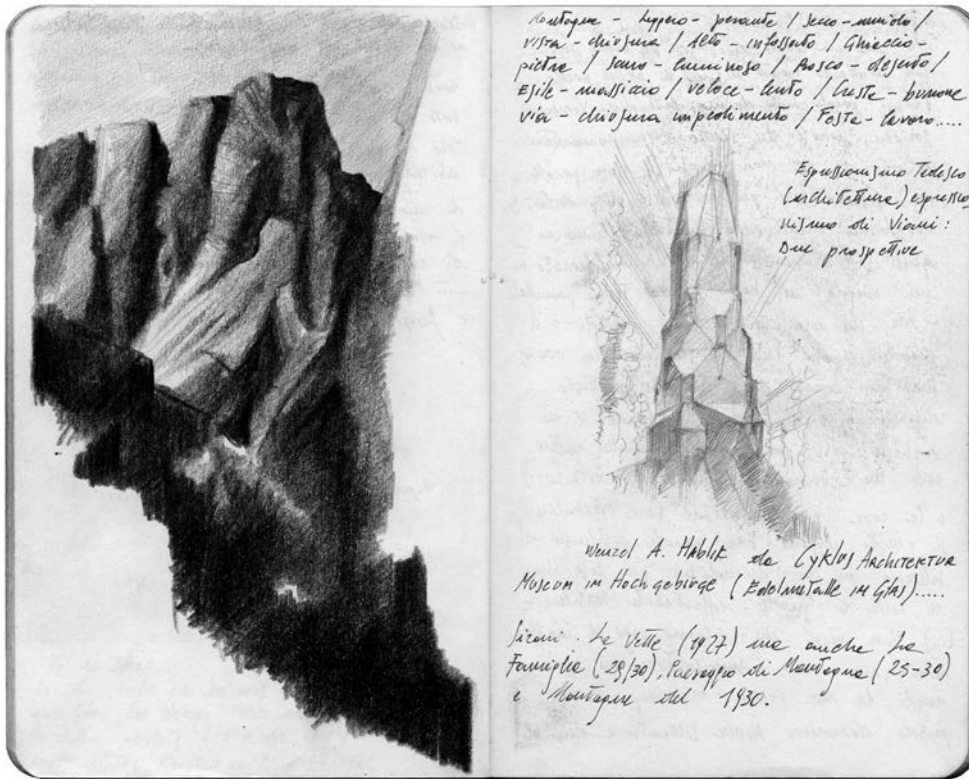 Montagne - leggero - pesante / secco - umido /
vista - chiusura / Alto - infossato / Ghiaccio -
pietra / scuro - luminoso / Bosco - deserto /
Esile - massiccio / veloce - lento / Cresta - burrone
via - chiusura impedimento / Festa - lavoro.....
Espressionismo Tedesco
(architettura) espressio
nismo di Viani:
Due prospettive
Wenzel A. Hablik da Cyklus Architektur
Museum im Hochgebirge (Edelmetalle im Glas).....
Sironi. Le Vette (1927) ma anche La
Famiglia (29/30). Paesaggio di Montagna (25-30)
e Montagne del 1930.